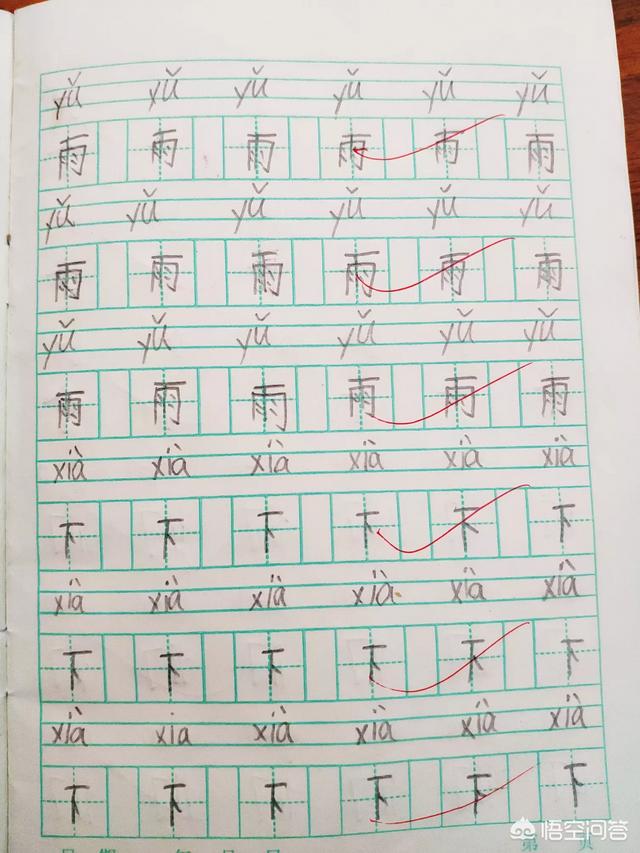 yǔ yǔ yǔ yǔ yǔ yǔ
雨 雨 雨 雨 雨 雨
yǔ yǔ yǔ yǔ yǔ yǔ
雨 雨 雨 雨 雨 雨
yǔ yǔ yǔ yǔ yǔ yǔ
雨 雨 雨 雨 雨 雨
xià xià xià xià xià xià
下 下 下 下 下 下
xià xià xià xià xià xià
下 下 下 下 下 下
xià xia xià xià xià xià
下 下 下 下 下 下
第 页
悟空问答